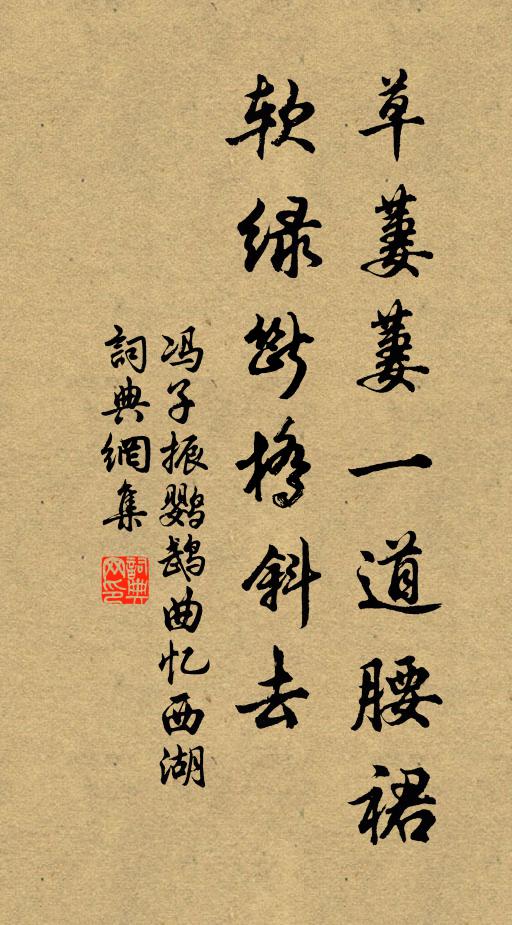 草蔞蔞一道腰裙
软绿断橋斜去
冯子振鹦鹉曲忆西湖
詞典網集
詞典网印